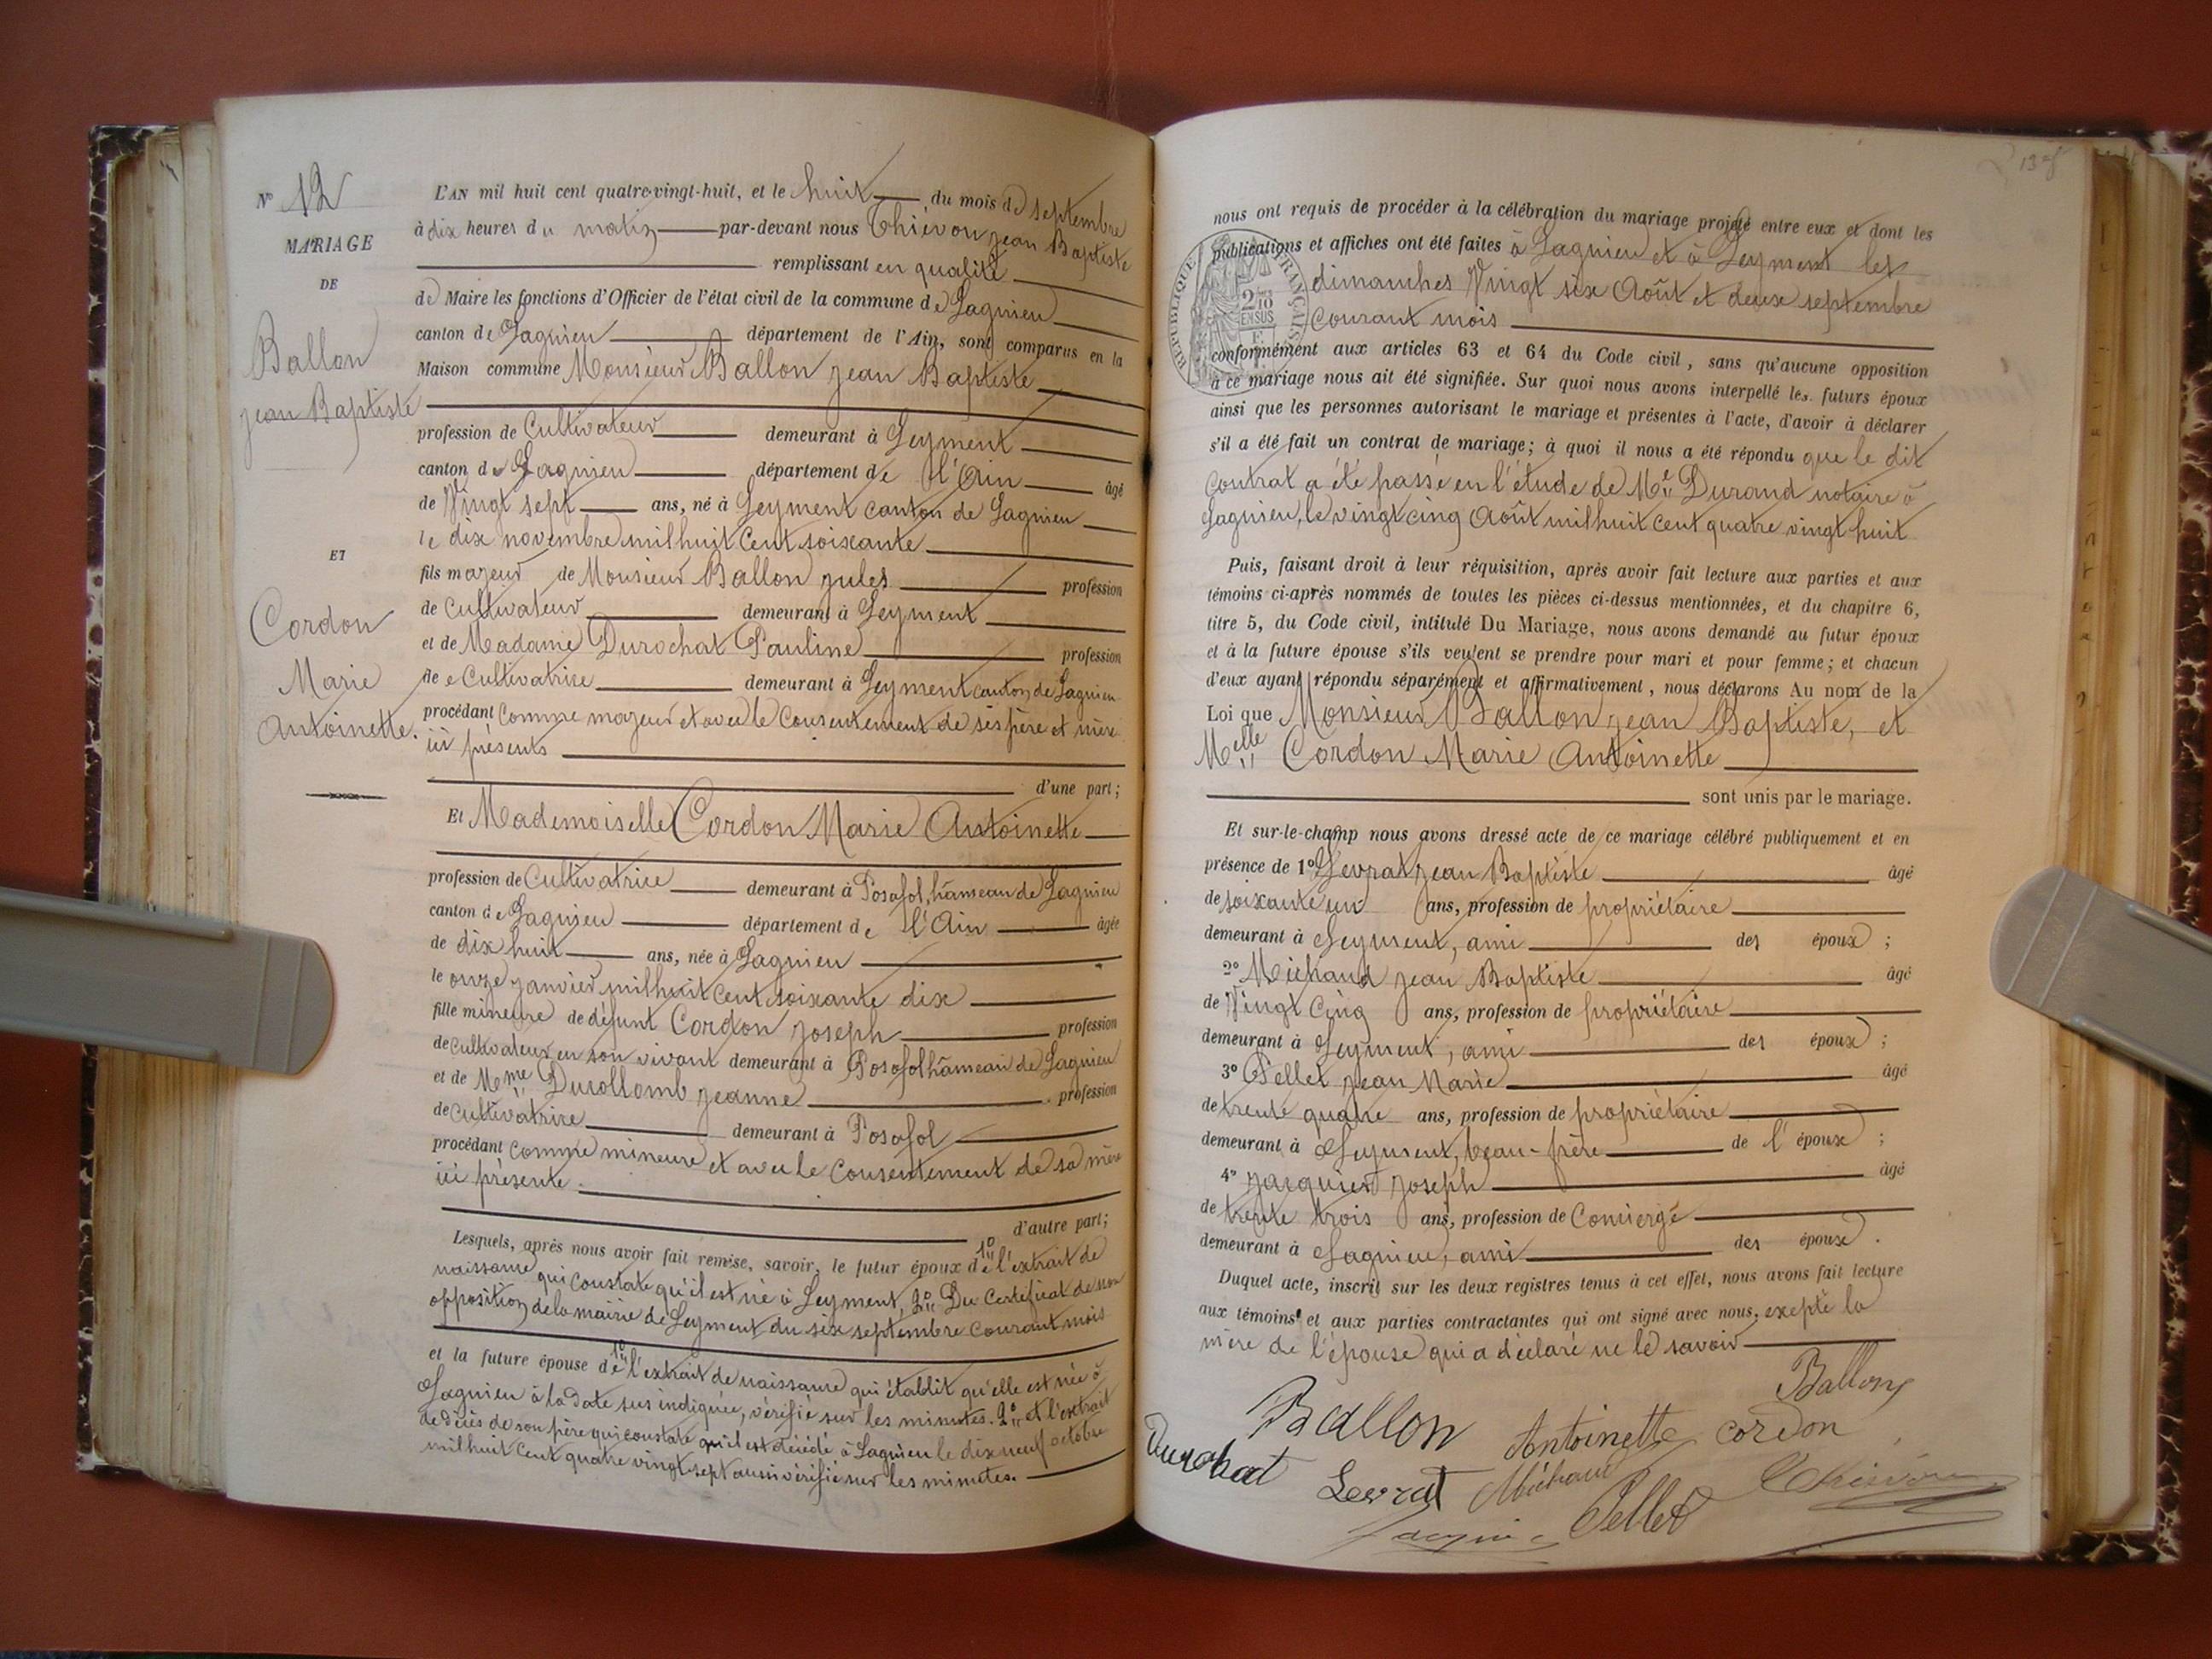 N° 12
MARIAGE
DE
Ballon
jean Baptiste
ET
Cordon
Marie
Antoinette.
L'AN mil huit cent quatre-vingt-huit, et le huit du mois de septembre
à dix heures du matin par-devant nous Thiévon jean Baptiste
remplissant en qualité
de Maire les fonctions d'Officier de l'état civil de la commune de Lagnieu
canton de Lagnieu département de l'Ain, sont comparus en la
Maison commune Monsieur Ballon jean Baptiste
profession de Cultivateur demeurant à Leyment
canton de Lagnieu département de l'Ain âgé
de Vingt sept ans, né à Leyment canton de Lagnieu
le dix novembre mil huit cent soixante
fils majeur de Monsieur Ballon jules profession
de Cultivateur demeurant à Leyment
et de Madame Durochat Pauline profession
de Cultivatrice demeurant à Leyment canton de Lagnieu
procédant comme majeur et avec le consentement de ses père et mère
ici présents
d'une part;
Et Mademoiselle Cordon Marie Antoinette
profession de Cultivatrice demeurant à Posafol, hâmeau de Lagnieu
canton de Lagnieu département de l'Ain âgée
de dix huit ans, née à Lagnieu
le onze janvier mil huit cent soixante dix
fille mineure de défunt Cordon joseph profession
de cultivateur en son vivant demeurant à Posafol hâmeau de Lagnieu
et de Mme Ducollomb jeanne profession
de cultivatrice demeurant à Posafol
procédant comme mineure et avec le consentement de sa mère
ici présente.
d'autre part;
Lesquels, après nous avoir fait remise, savoir, le futur époux de 1° l'extrait de
naissance qui constate qu'il est né à Leyment, 2° Du Certificat de non
opposition de la mairie de Leyment du six septembre courant mois
et la future épouse de 1° l'extrait de naissance qui établit qu'elle est née à
Lagnieu à la date sus indiquée, vérifié sur les minutes. 2° et l'extrait
de décès de son père qui constate qu'il est décédé à Lagnieu le dix neuf octobre
mil huit cent quatre vingt sept aussi vérifié sur les minutes.
nous ont requis de procéder à la célébration du mariage projeté entre eux et dont les
publications et affiches ont été faites à Lagnieu et à Leyment les
dimanches Vingt six Août et deux septembre
courant mois
conformément aux articles 63 et 64 du Code civil, sans qu'aucune opposition
à ce mariage nous ait été signifiée. Sur quoi nous avons interpellé les futurs époux
ainsi que les personnes autorisant le mariage et présentes à l'acte, d'avoir à déclarer
s'il a été fait un contrat de mariage; à quoi il nous a été répondu que le dit
contrat a été passé en l'étude de Me Durand notaire à
Lagnieu, le vingt cinq Août mil huit cent quatre vingt huit
Puis, faisant droit à leur réquisition, après avoir fait lecture aux parties et aux
témoins ci-après nommés de toutes les pièces ci-dessus mentionnées, et du chapitre 6,
titre 5, du Code civil, intitulé Du Mariage, nous avons demandé au futur époux
et à la future épouse s'ils veulent se prendre pour mari et pour femme; et chacun
d'eux ayant répondu séparément et affirmativement, nous déclarons Au nom de la
Loi que Monsieur Ballon jean Baptiste, et
Melle Cordon Marie Antoinette
sont unis par le mariage.
Et sur-le-champ nous avons dressé acte de ce mariage célébré publiquement et en
présence de 1° Levrat jean Baptiste âgé
de soixante un ans, profession de propriétaire
demeurant à Leyment, ami des époux;
2° Michaud jean Baptiste âgé
de Vingt Cinq ans, profession de propriétaire
demeurant à Leyment, ami des époux;
3° Pellet jean Marie âgé
de trente quatre ans, profession de propriétaire
demeurant à Leyment, beau-frère de l'époux;
4° jacquier joseph âgé
de trente trois ans, profession de Concierge
demeurant à Lagnieu, ami des époux.
Duquel acte, inscrit sur les deux registres tenus à cet effet, nous avons fait lecture
aux témoins et aux parties contractantes qui ont signé avec nous, exepté la
mère de l'épouse qui a déclaré ne le savoir
Ballon
Ballon Antoinette cordon
Durochat Levrat Michaud Thiévon
Pellet
REPUBLIQUE FRANÇAISE
2/10 EN SUS